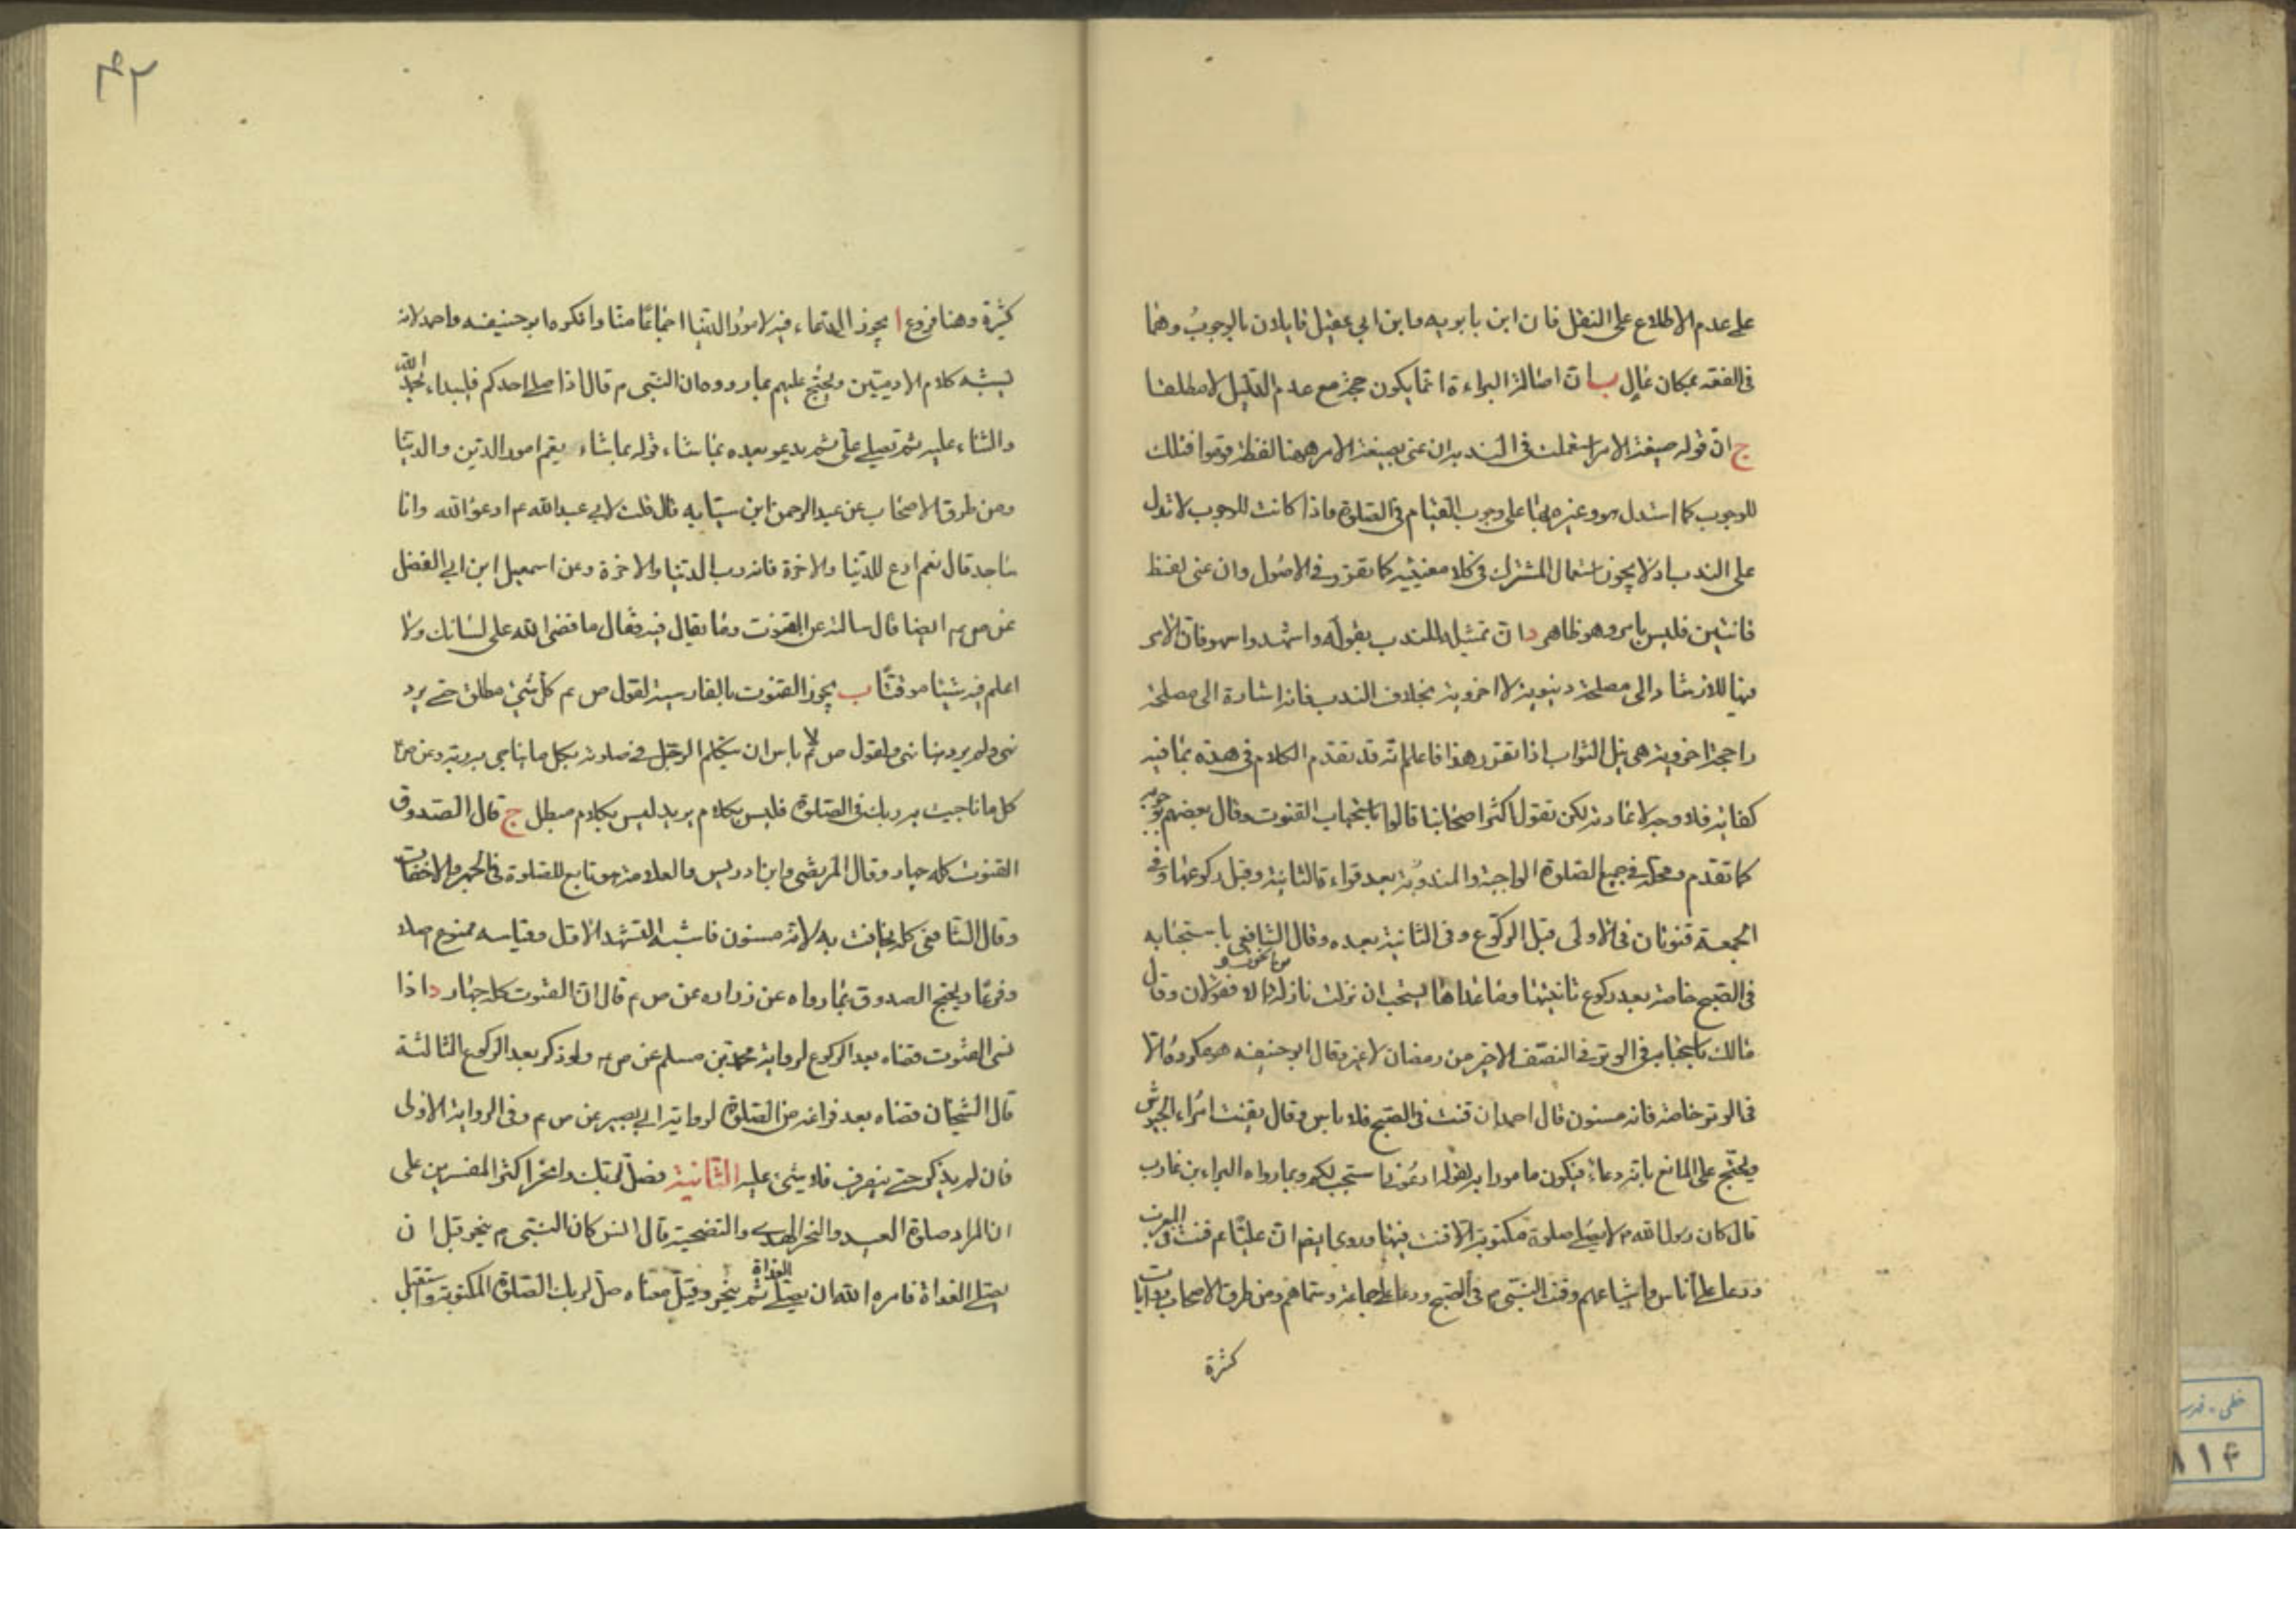 على عدم الاطلاع على النقل فان ابن بابويه وابن ابي عقيل قايلان بالوجوب وهما
فى الفقه بمكان عال ب ان اصالة البراءة انما يكون حجة مع عدم الدليل لا مطلقا
ج ان قوله صيغة الامر استعملت فى الندب ان عنى بصيغة الامر ههنا لفظة وقوموا فتلك
للوجوب كما استدل هو وغيره بها على وجوب القيام فى الصلوة واذا كانت للوجوب لا تدل
على الندب اذ لا يجوز استعمال المشترك فى كلا معنييه كما تقرر فى الاصول وان عنى لفظ
قانتين فليس بامر وهو ظاهر د ان تمثيله للندب بقوله واشهدوا سهو فان الامر
فيها للارشاد الى مصلحة دنيوية لا اخروية بخلاف الندب فانه اشارة الى مصلحة
راجحة اخروية هى نيل الثواب اذا تقرر هذا فاعلم انه قد تقدم الكلام فى هذه بما فيه
كفاية فلا وجه لاعادته لكن نقول اكثر اصحابنا قالوا باستحباب القنوت وقال بعضهم بوجوبه
كما تقدم ومحله فى جميع الصلوة الواجبة والمندوبة بعد قراءة الثانية وقبل ركوعها وفى
الجمعة قنوتان فى الاولى قبل الركوع وفى الثانية بعده وقال الشافعى باستحبابه
فى الصبح خاصة بعد ركوع ثانيتها وما عداها يستحب ان نزلت نازلة والا فقولان وقال
مالك باستحبابه فى الوتر فى النصف الاخير من رمضان لا غير وقال ابو حنيفه هو مكروه الا
فى الوتر خاصة فانه مسنون قال احمد ان قنت فى الصبح فلا باس وقال يقنت امراء الجيوش
ويحتج على المانع بانه دعاء فيكون مامورا به لقوله ادعونى استجب لكم وبما رواه البراء بن عازب
قال كان رسول الله م لا يصلى صلوة مكتوبة الا قنت فيها وروى ايضا ان عليا عم قنت فى المغرب
ودعا على اناس واشياعهم وقنت النبى م فى الصبح ودعا على جماعة وسماهم ومن طرق الاصحاب روايات
كثرة
٤٢
كثيرة وهنا فروع ا يجوز الدعاء فيه لامور الدنيا اجماعا منا وانكره ابو حنيفه واحمد لانه
يشبه كلام الادميين ويحتج عليهم بما رووه ان النبى م قال اذا صلى احدكم فليبداء بحمد الله
والثناء عليه ثم يصلى على ثم يدعو بعده بما شاء قوله بما شاء يعم امور الدين والدنيا
ومن طرق الاصحاب عن عبد الرحمن ابن سيابه قال قلت لابي عبد الله عم ادعو الله وانا
ساجد قال نعم ادع للدنيا والاخرة فانه رب الدنيا والاخرة وعن اسمعيل ابن ابي الفضل
عن ص عم ايضا قال سالته عن القنوت وما يقال فيه فقال ما قضى الله على لسانك ولا
اعلم فيه شيئا موقتا ب يجوز القنوت بالفارسية لقول ص عم كل شئ مطلق حتى يرد
نهى ولم يرد هنا نهى ولقول ص عم لا باس ان يتكلم الرجل فى صلوته بكل ما يناجى به ربه وعن ص عم
كل ما ناجيت به ربك فى الصلوة فليس بكلام يريد ليس بكلام مبطل ج قال الصدوق
القنوت كله جهار وقال المرتضى وابن ادريس والعلامة هو تابع للصلوة فى الجهر والاخفات
وقال الشافعى كله يخافت به لانه مسنون فاشبه التشهد الاول وقياسه ممنوع اصلا
وفرعا ويحتج الصدوق بما رواه عن زراره عن ص عم قال ان القنوت كله جهار د اذا
نسى القنوت قضاه بعد الركوع لرواية محمد بن مسلم عن ص عم ولو ذكر بعد الركوع الثالثة
قال الشيخان قضاه بعد فراغه من الصلوة لرواية ابي بصير عن ص عم وفى الرواية الاولى
فان لم يذكر حتى ينصرف فلا شئ عليه الثانية فصل لربك وانحر اكثر المفسرين على
ان المراد صلوة العيد والنحر الهدى والتضحية قال انس كان النبى م ينحر قبل ان
يصلى الغداة فامره الله ان يصلى الغداة ثم ينحر وقيل معناه صل لربك الصلوة المكتوبة واستقبل
خطى - فهرست
٨١٤